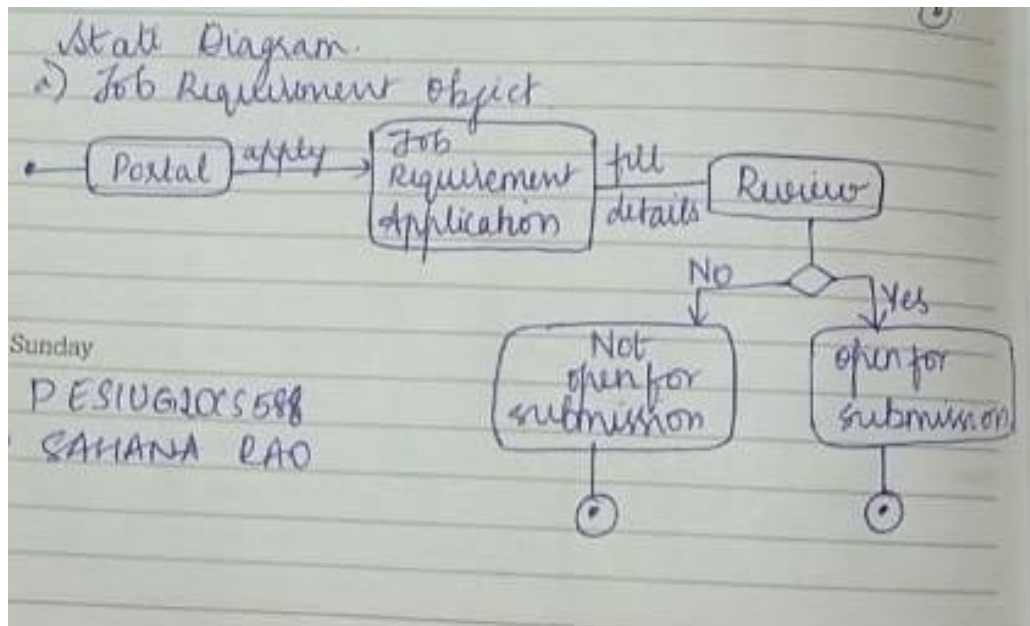 State Diagram.
a) Job Requirement Object
Portal
apply
Job
Requirement
Application
fill
details
Review
No
Yes
Not
open for
submission
open for
submission
Sunday
PES1UG20CS588
SAHANA RAO